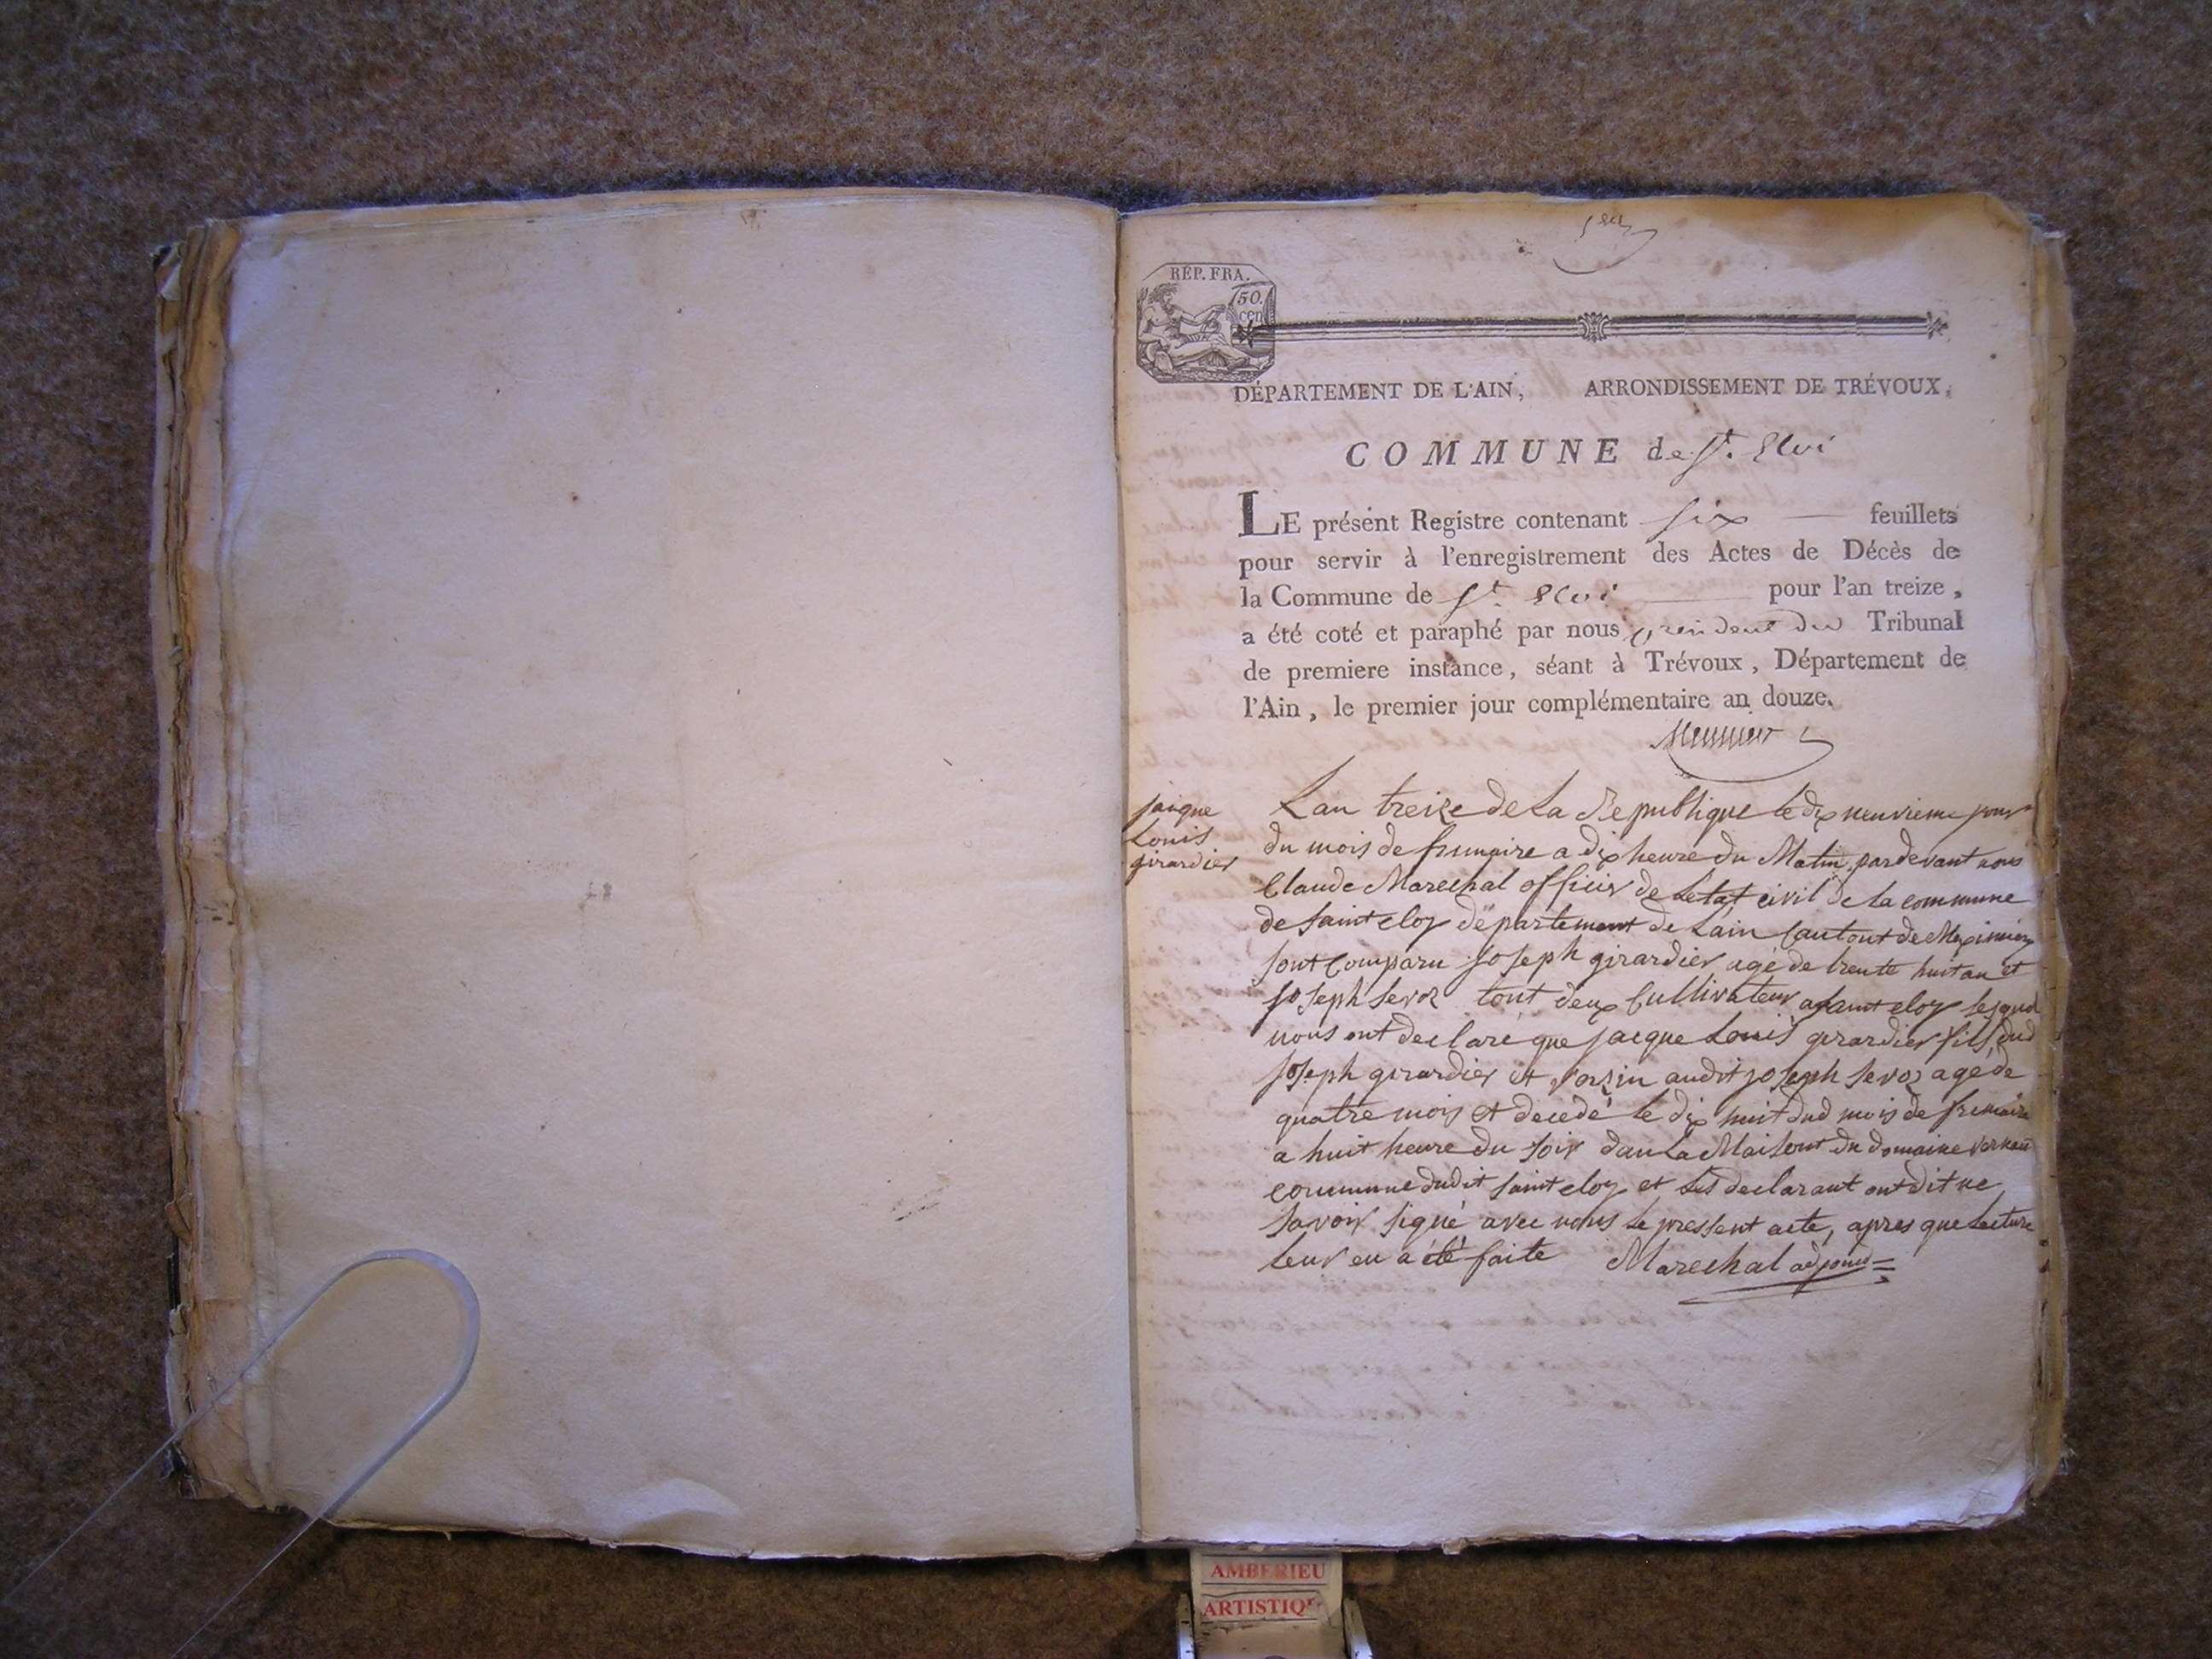 1er
RÉP. FRA.
50.
cen
DÉPARTEMENT DE L'AIN, ARRONDISSEMENT DE TRÉVOUX,
COMMUNE de St. Eloi
LE présent Registre contenant six feuillets
pour servir à l'enregistrement des Actes de Décès de
la Commune de St. Eloi pour l'an treize,
a été coté et paraphé par nous president du Tribunal
de premiere instance, séant à Trévoux, Département de
l'Ain, le premier jour complémentaire an douze.
jacque
Louis
girardier
Lan treize de La Republique le dix neuvieme jour
du mois de frimaire a dix heure du Matin, par devant nous
Claude Marechal officier de Letat civil de la commune
de saint eloy département de Lain Cantont de Meximieux
sont Comparu Joseph girardier agé de trente huit an et
Joseph sevoz tout deux Cultivateur a saint eloy lesquel
nous ont declaré que jacque Louis girardier fils dud
Joseph girardier et voizin audit joseph sevoz agé de
quatre mois et decedé le dix huit dud mois de frimaire
a huit heure du soir dan La Maisont du domaine
commune dudit saint eloy et les declarant ont dit ne
savoir signé avec nous le pressent acte, apres que Lecture
leur en a été faite Marechal adjoint
AMBERIEU
ARTISTIQ